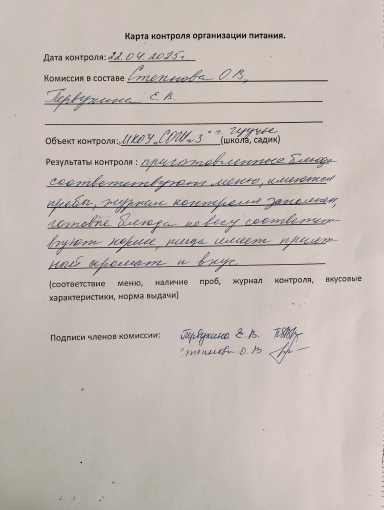 Карта контроля организации питания.
Дата контроля: 22.04.2025г
Комиссия в составе Степнова О.В,
Первухина Е.В.
Объект контроля: МКОУ СОШ №3 (школа, садик)
Результаты контроля : приготовленные блюда
соответствуют меню, имеются
пробы, журнал контроля заполнен,
готовые блюда по весу соответст
вуют норме, пища имеет прият
ный аромат и вкус.
(соответствие меню, наличие проб, журнал контроля, вкусовые
характеристики, норма выдачи)
Подписи членов комиссии: Первухина Е.В.
Степнова О.В